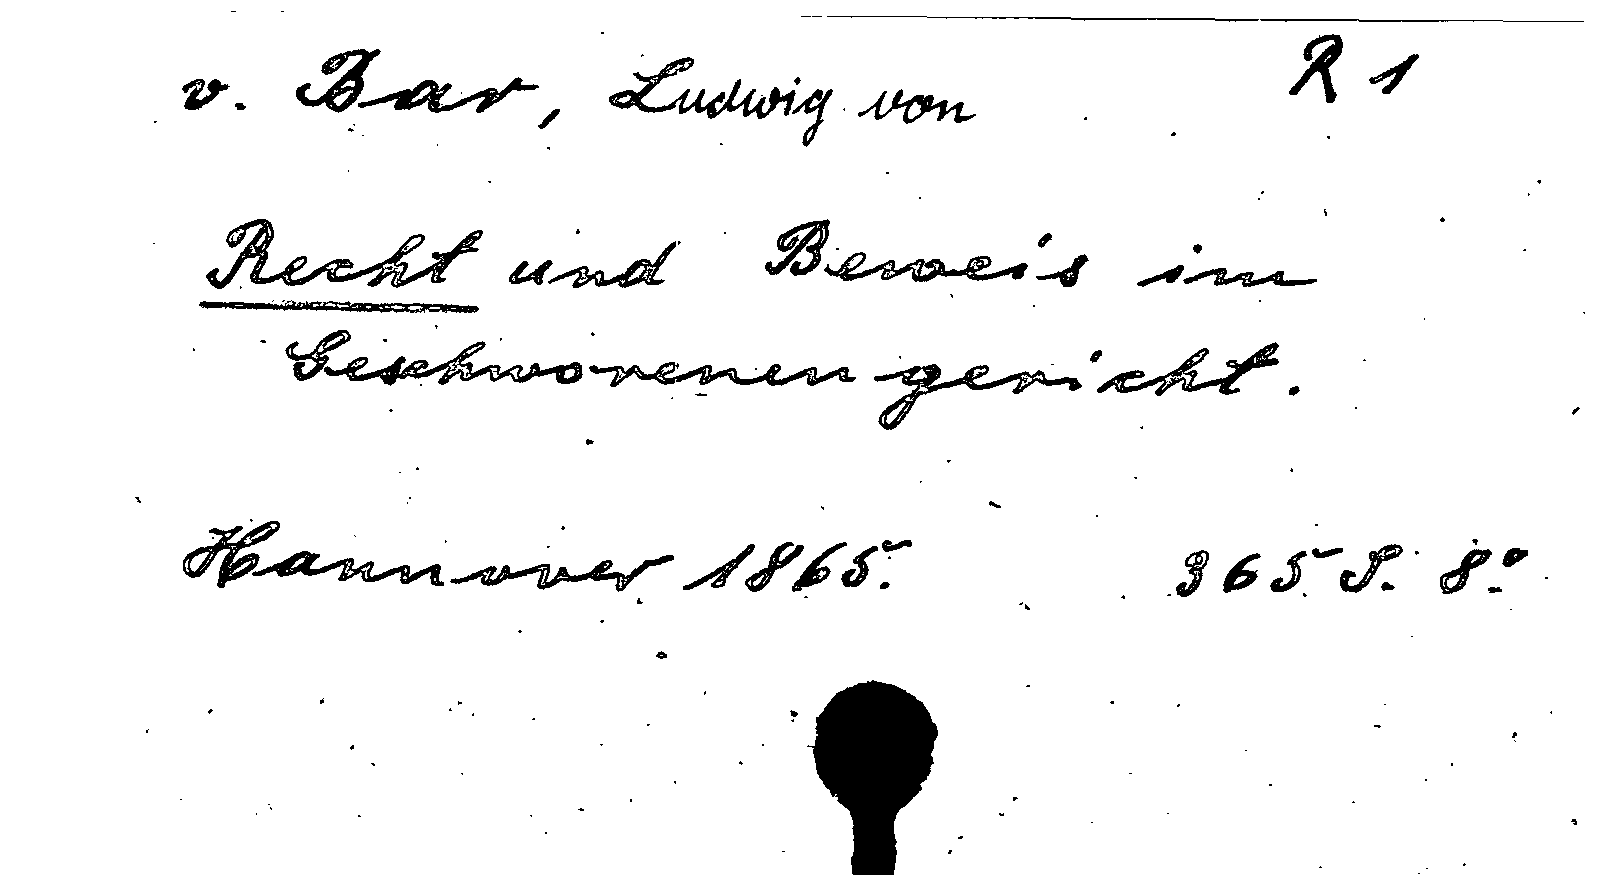 v. Bar, Ludwig von R 1
Recht und Beweis im
Geschworenengericht.
Hannover 1865. 365 S. 8°